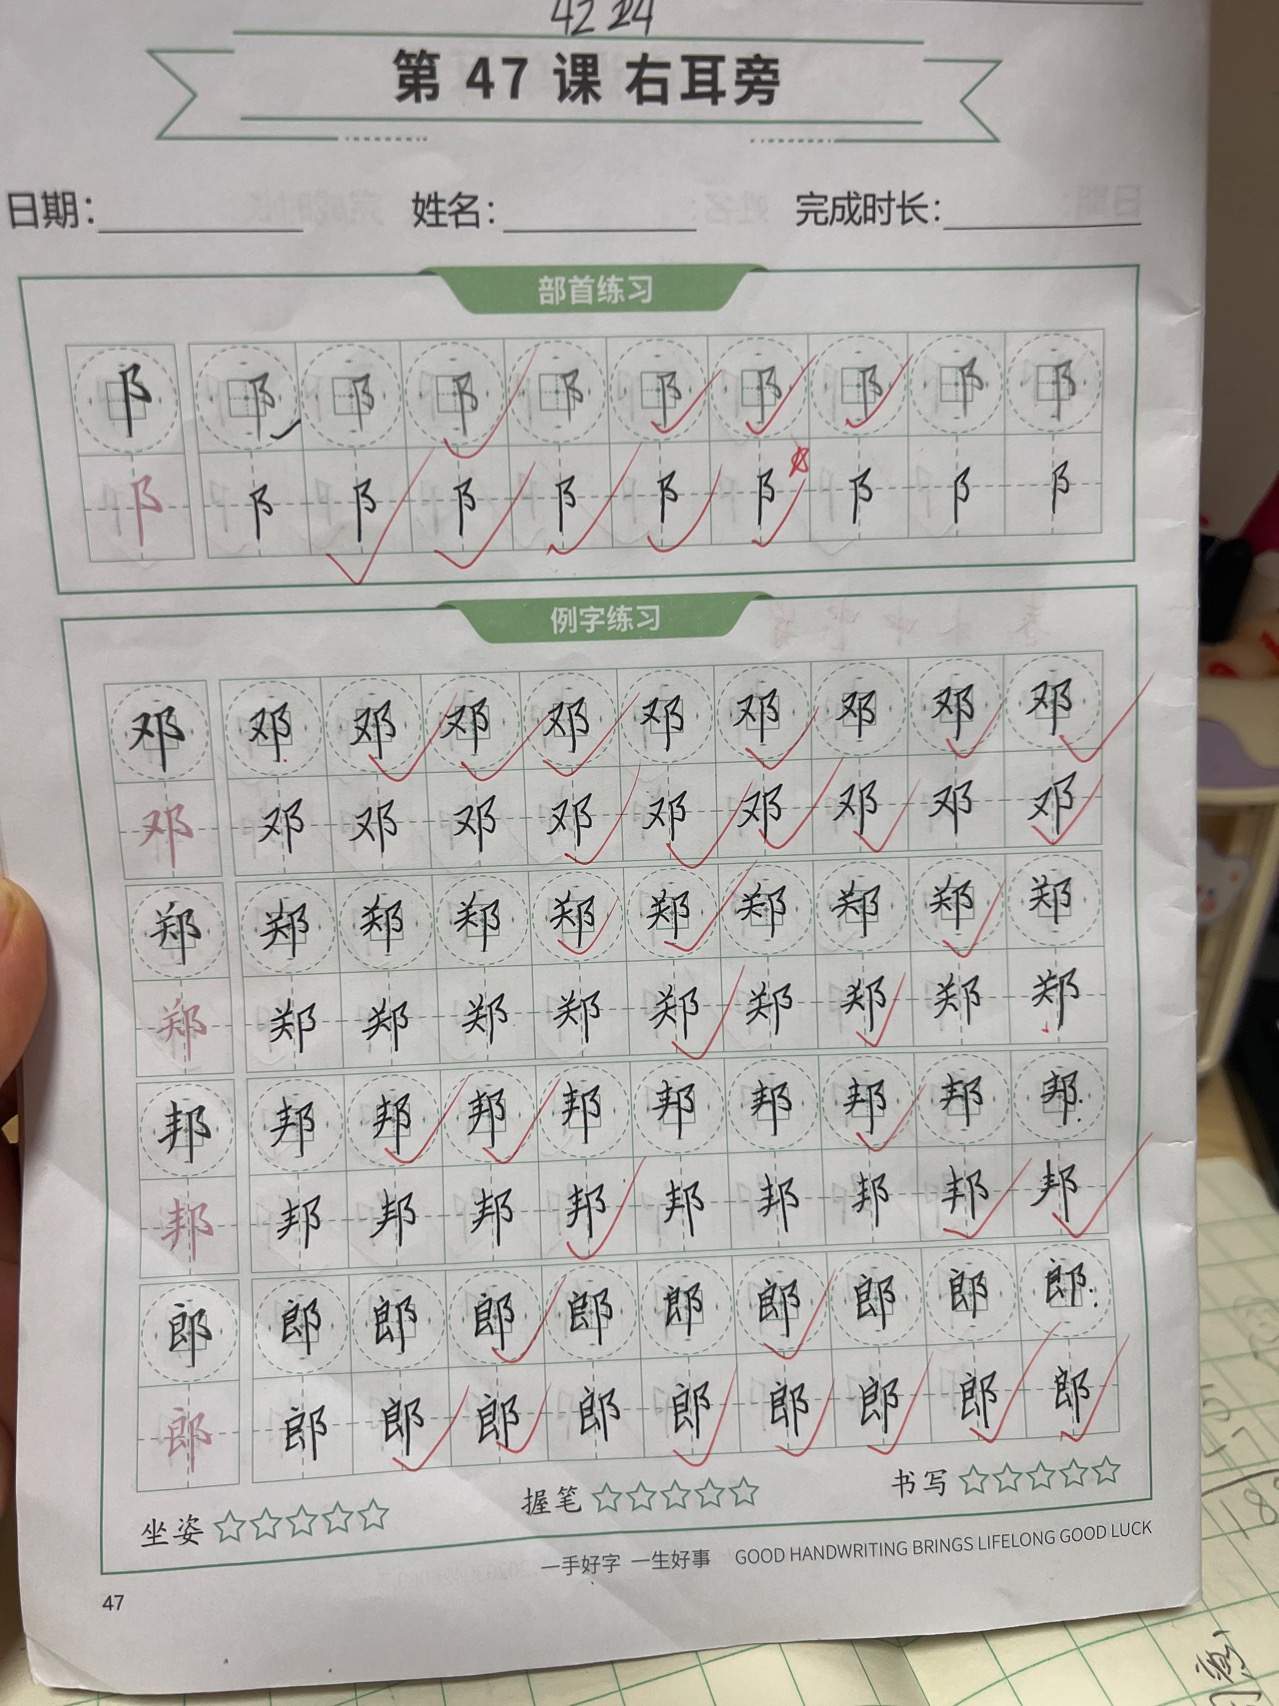 4224
第 47 课 右耳旁
日期： 姓名： 完成时长：
部首练习
阝 阝 阝 阝 阝 阝 阝 阝 阝 阝
阝 阝 阝 阝 阝 阝 阝 阝 阝 阝
例字练习
邓 邓 邓 邓 邓 邓 邓 邓 邓 邓
邓 邓 邓 邓 邓 邓 邓 邓 邓 邓
郑 郑 郑 郑 郑 郑 郑 郑 郑 郑
郑 郑 郑 郑 郑 郑 郑 郑 郑 郑
邦 邦 邦 邦 邦 邦 邦 邦 邦 邦
邦 邦 邦 邦 邦 邦 邦 邦 邦 邦
郎 郎 郎 郎 郎 郎 郎 郎 郎 郎
郎 郎 郎 郎 郎 郎 郎 郎 郎 郎
坐姿 ☆☆☆☆☆ 握笔 ☆☆☆☆☆ 书写 ☆☆☆☆☆
一手好字 一生好事 GOOD HANDWRITING BRINGS LIFELONG GOOD LUCK
47